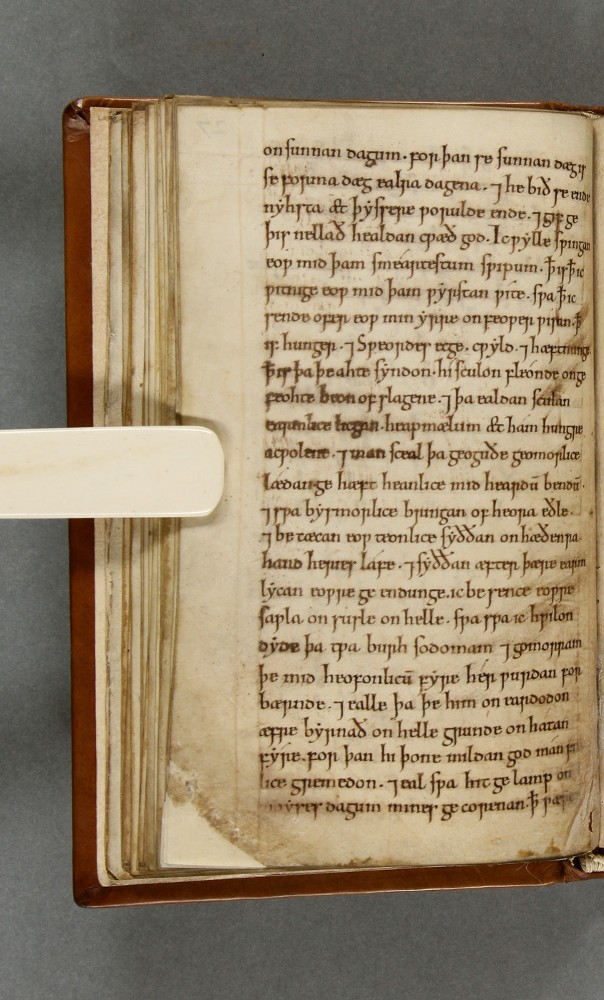 on sunnan dagum. for þan se sunnan dæg is
se forma dæg ealra dagena. ⁊ he bið se ende
nyhsta æt þyssere worulde ende. ⁊ gif ge
þis nellað healdan cwæð god. Ic wylle swingan
eow mid þam smeartestum swipum. ꝥ is ꝥ ic
witnige eow mid þam wyrstan wite. swa ꝥ ic
sende ofer eow min yrre on feower wisun. ꝥ
is hunger. ⁊ Sweordes ecge. cwyld. ⁊ hæftnunge.
ꝥ is þa þe ahte syndon. hi sculon fleonde on ge
feohte beon of slagene. ⁊ þa ealdan sculan
earmlice licgan. heapmælum æt ham hungre
acwolene. ⁊ man sceal þa geoguðe geomorlice
lædan ge hæft heanlice mid heardū bendū.
⁊ swa bysmorlice bringan of heora eðle.
⁊ be tæcan eow teonlice syððan on hæðenra
hand heries lafe. ⁊ syððan æfter þære earm
lycan eowre ge endunge. ic be sence eowre
sawla on susle on helle. swa swa ic hwilon
dyde þa twa burh sodomam ⁊ gomorram
þe mid heofonlicū fyre her wurdan for
bærnde. ⁊ ealle þa þe him on eardodon
æfre byrnað on helle grunde on hatan
fyre. for þan hi þone mildan god man f
lice gremedon. ⁊ eal swa hit ge lamp on
moyses dagum mines ge corenan. ꝥ